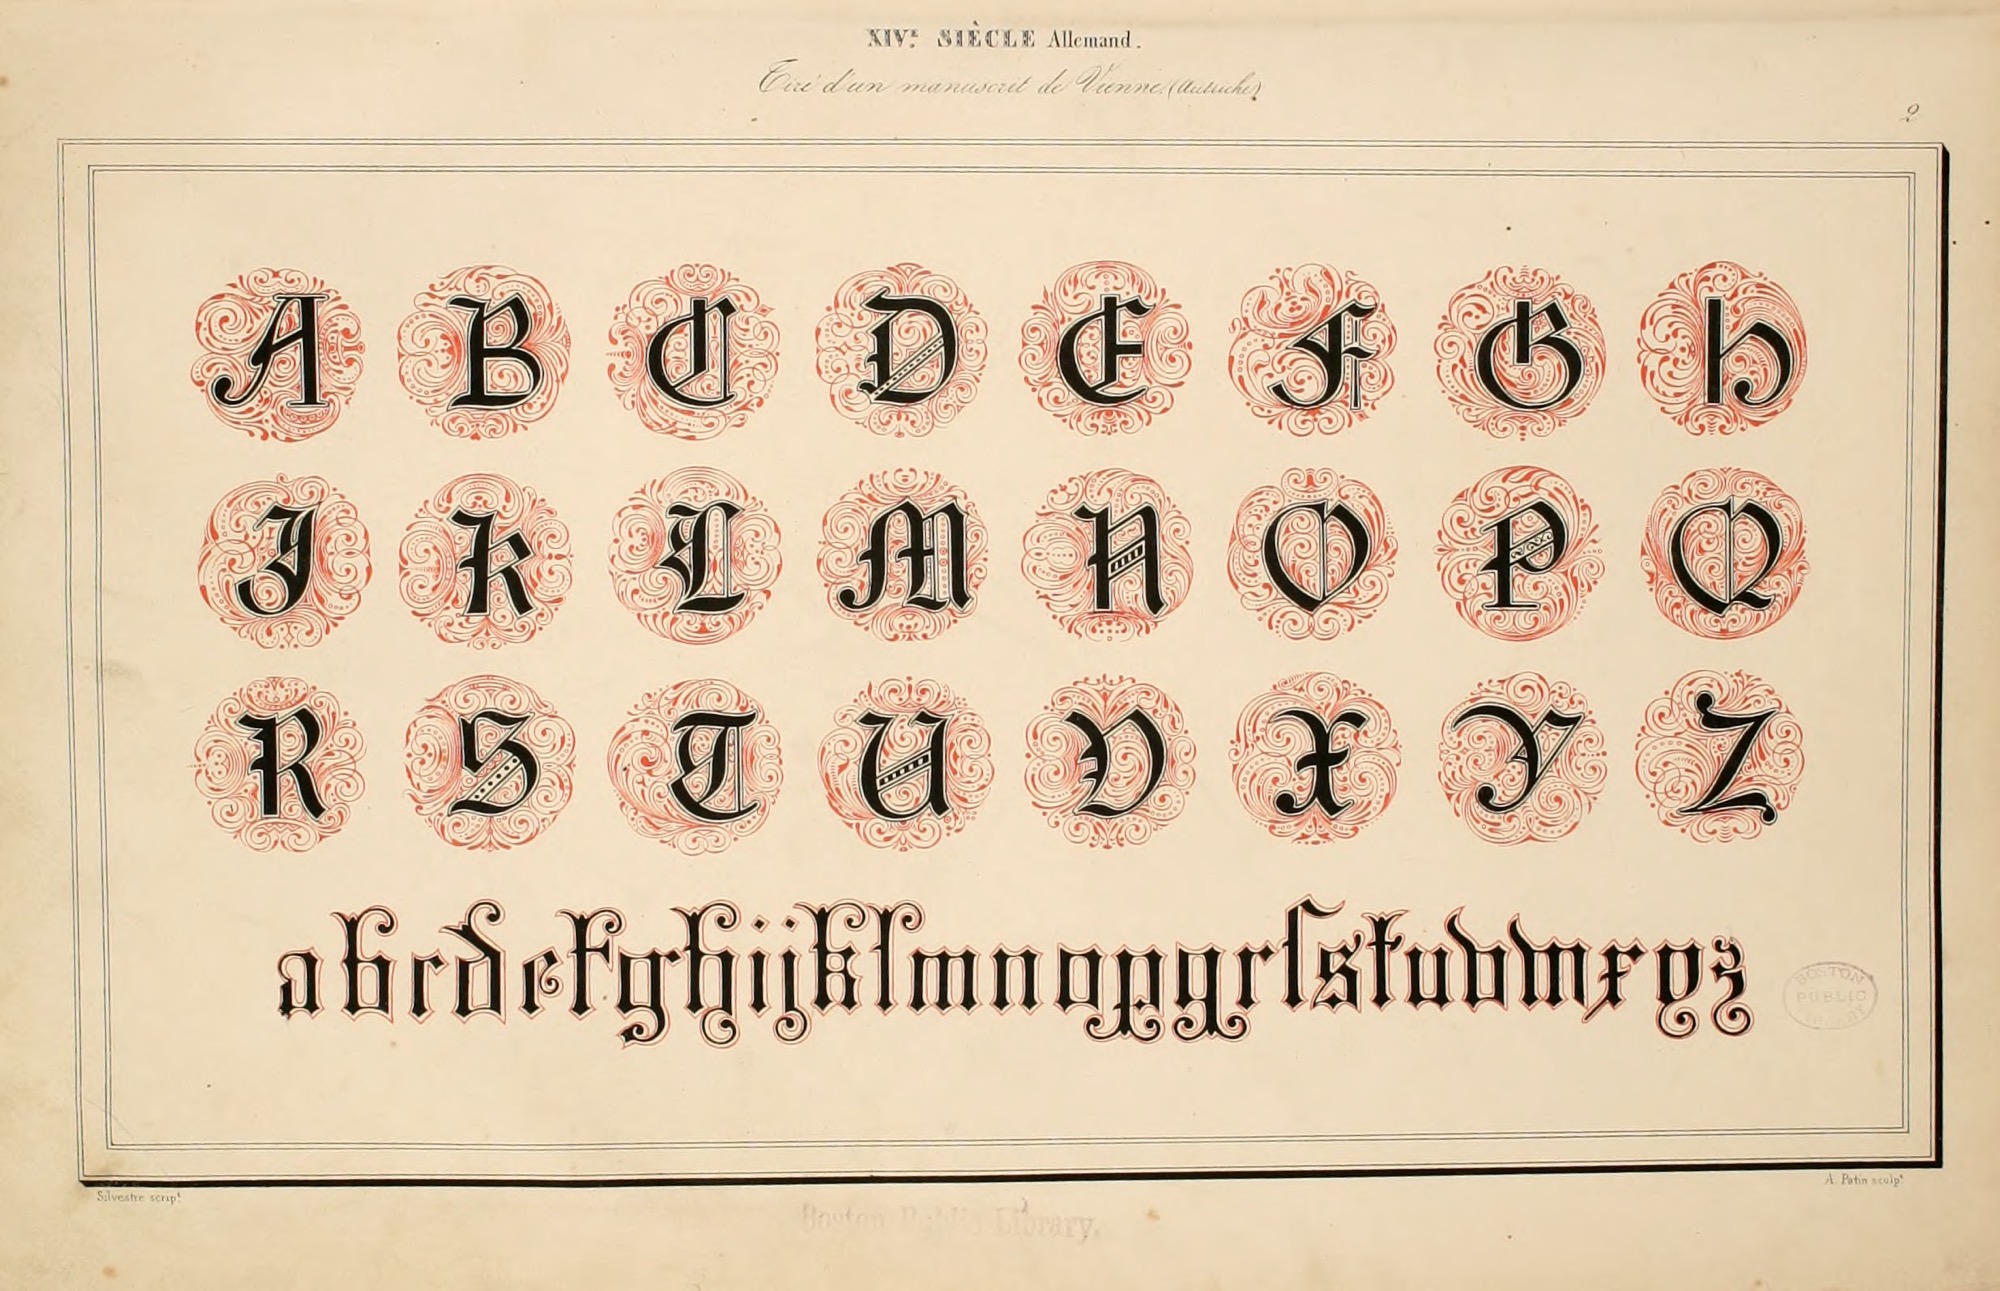 XIV.E SIÈCLE Allemand.
Tiré d'un manuscrit de Vienne. (Autriche)
2
A B C D E F G H
J K L M N O P Q
R S T U V X Y Z
a b c d e f g h i j k l m n o p q r ſ s t u v w x y z
BOSTON
PUBLIC
LIBRARY
Silvestre scrip.t
A. Patin sculp.t
Boston Public Library.